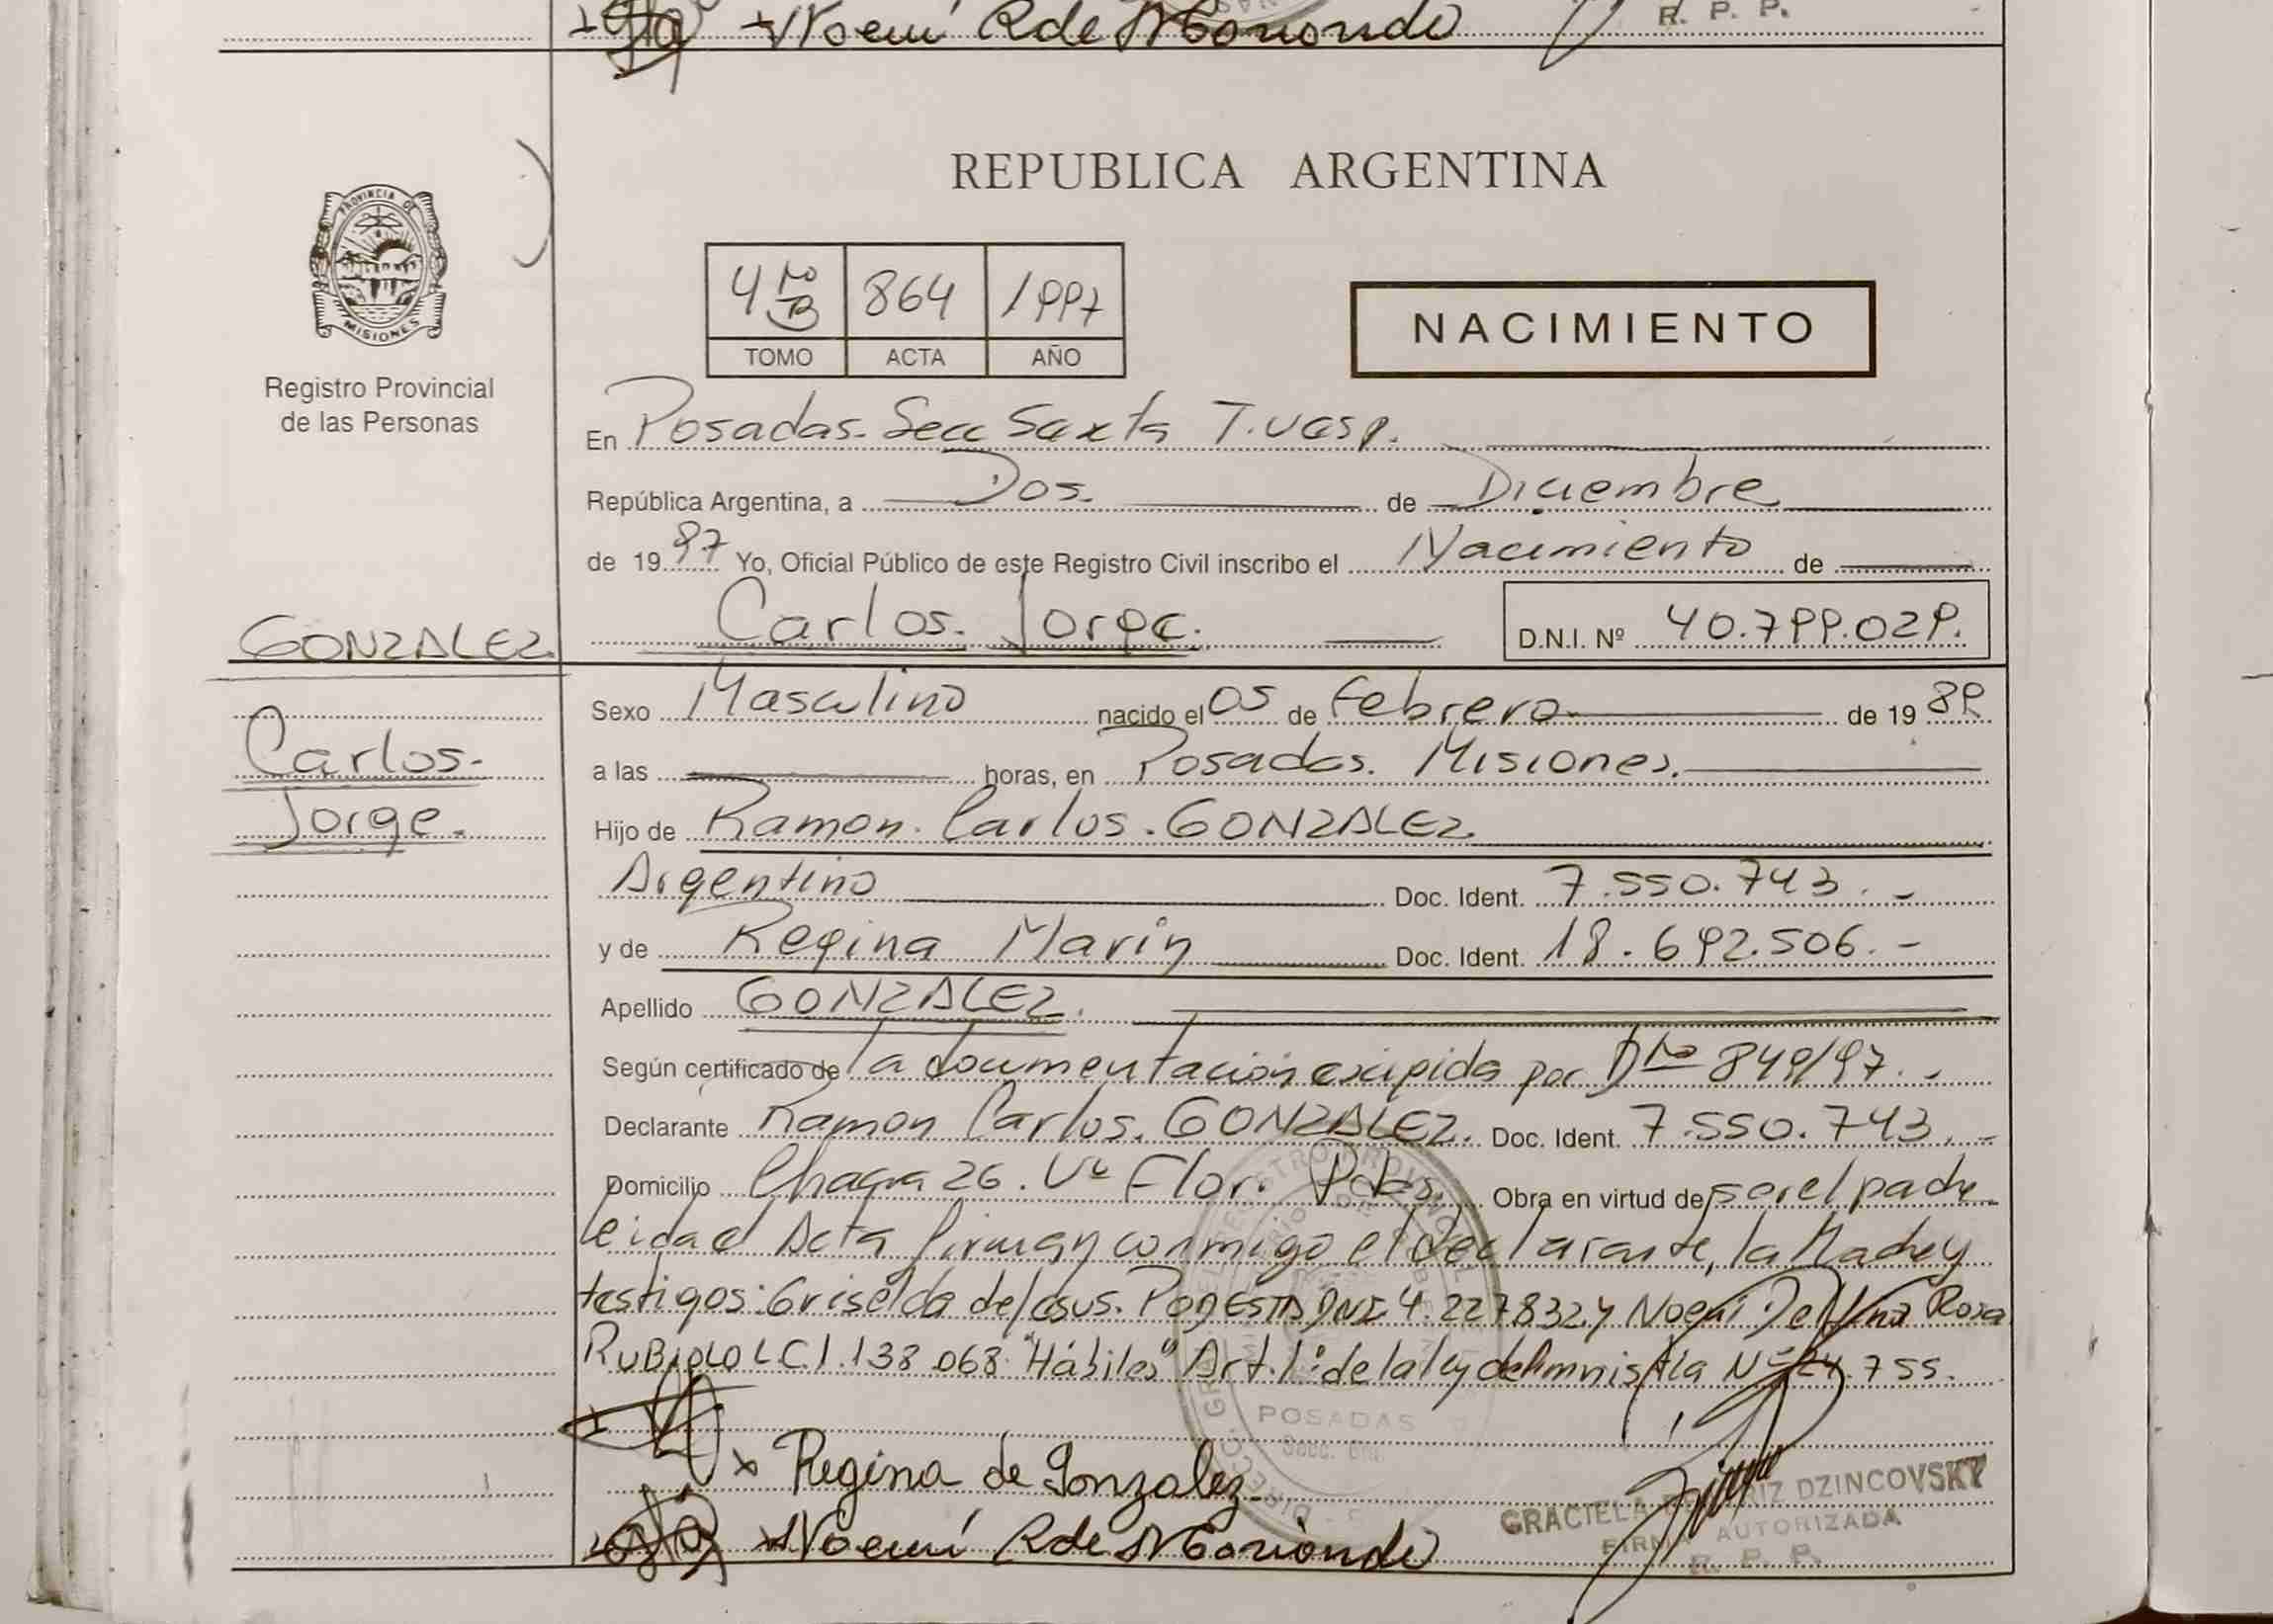 Noemí R de Moriondo
R. P. P.
PROVINCIA DE
MISIONES
Registro Provincial
de las Personas
REPUBLICA ARGENTINA
4to B 864 1997
TOMO ACTA AÑO
NACIMIENTO
En Posadas. Secc Sexta T.
República Argentina, a Dos. de Diciembre
de 1997 Yo, Oficial Público de este Registro Civil inscribo el Nacimiento de
GONZALEZ Carlos. Jorge. D.N.I. Nº 40.799.029.
Carlos.
Jorge.
Sexo Masculino nacido el 05 de Febrero de 1989
a las horas, en Posadas. Misiones.
Hijo de Ramon. Carlos. GONZALEZ
Argentino Doc. Ident. 7.550.743.-
y de Regina Marin Doc. Ident. 18.692.506.-
Apellido GONZALEZ.
Según certificado de la documentación exigida por Dto 840/97.-
Declarante Ramon Carlos. GONZALEZ. Doc. Ident. 7.550.743.-
Domicilio Chacra 26. Vº Flor. Pdas. Obra en virtud de ser el padre
leida el Acta firman conmigo el declarante, la Madre y
testigos: Griselda de Jesus. PODESTA DNI 4.227832 y Noemi Rosa
RUBIOLO LC 1.138.068 "Hábiles" Art. 1º de la ley de Amnistia Nº 24.755.
POSADAS
Secc. 6ta.
x Regina de Gonzalez
GRACIELA BEATRIZ DZINCOVSKY
Noemí R de Moriondo
FIRMA AUTORIZADA
R. P. P.